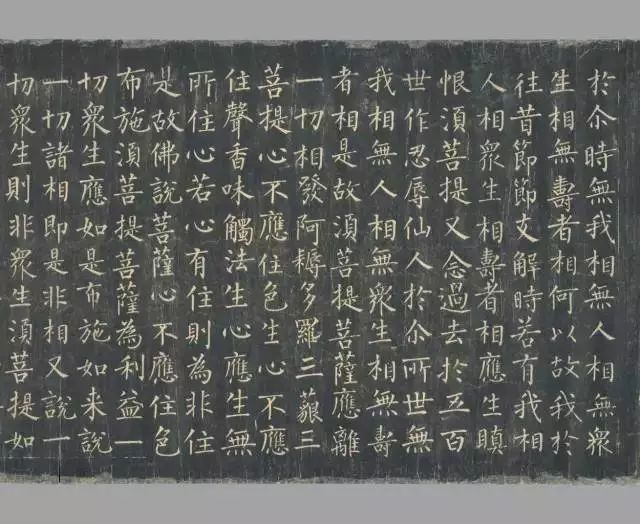 於尒時無我相無人相無衆
生相無壽者相何以故我於
往昔節節支解時若有我相
人相衆生相壽者相應生瞋
恨須菩提又念過去於五百
世作忍辱仙人於尒所世無
我相無人相無衆生相無壽
者相是故須菩提菩薩應離
一切相發阿耨多羅三藐三
菩提心不應住色生心不應
住聲香味觸法生心應生無
所住心若心有住則為非住
是故佛說菩薩心不應住色
布施須菩提菩薩為利益一
切衆生應如是布施如来說
一切諸相即是非相又說一
切衆生則非衆生須菩提如